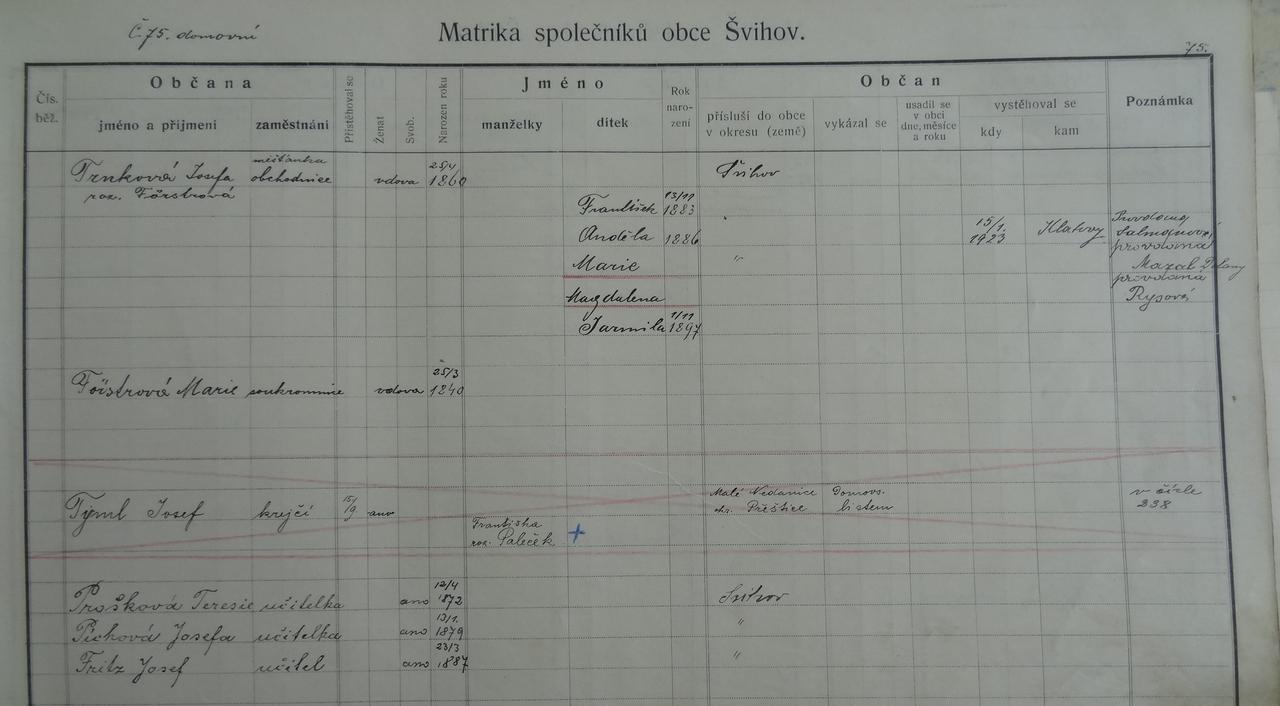 Č. 75. domovní
Matrika společníků obce Švihov.
75.
Čís. běž.
Občana
jméno a příjmení
zaměstnání
Přistěhoval se
Ženat
Svob.
Narozen roku
Jméno
manželky
dítek
Rok naro- zení
Občan
přísluší do obce v okresu (země)
vykázal se
usadil se v obci dne, měsíce a roku
vystěhoval se
kdy
kam
Poznámka
Trnková Josefa roz. Förstrová
měšťanka obchodnice
vdova
25/4 1860
Švihov
František 13/11 1883
Anděla 1886
15/1. 1923 Klatovy
Marie "
provdaná
Magdalena
provdaná Rysová
Jarmila 1/11 1897
Förstrová Marie soukromnice vdova 25/3 1840
Týml Josef krejčí 15/9 ano
Františka roz. Paleček +
Malé Nedanice okr. Přeštice
Domovs. listem
v čísle 238
Prošková Teresie učitelka ano 12/4 1872 Švihov
Pichová Josefa učitelka ano 13/1. 1879 "
Fritz Josef učitel ano 23/3 1887 "